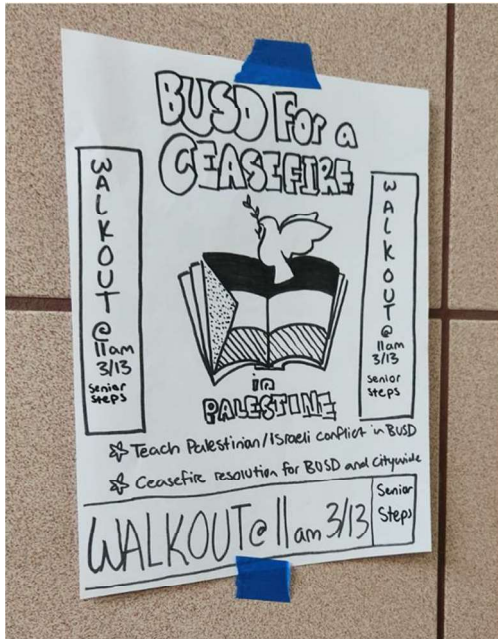 BUSD For a
CEASEFIRE
WALKOUT
@
11am
3/13
Senior
Steps
WALKOUT
@
11am
3/13
Senior
Steps
in
PALESTINE
Teach Palestinian/Israeli conflict in BUSD
Ceasefire resolution for BUSD and Citywide
WALKOUT@ 11am 3/13
Senior
Steps